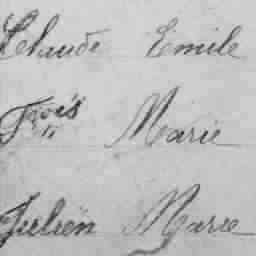 Lelaude Emile
Frois Marie
"
Julien Marie